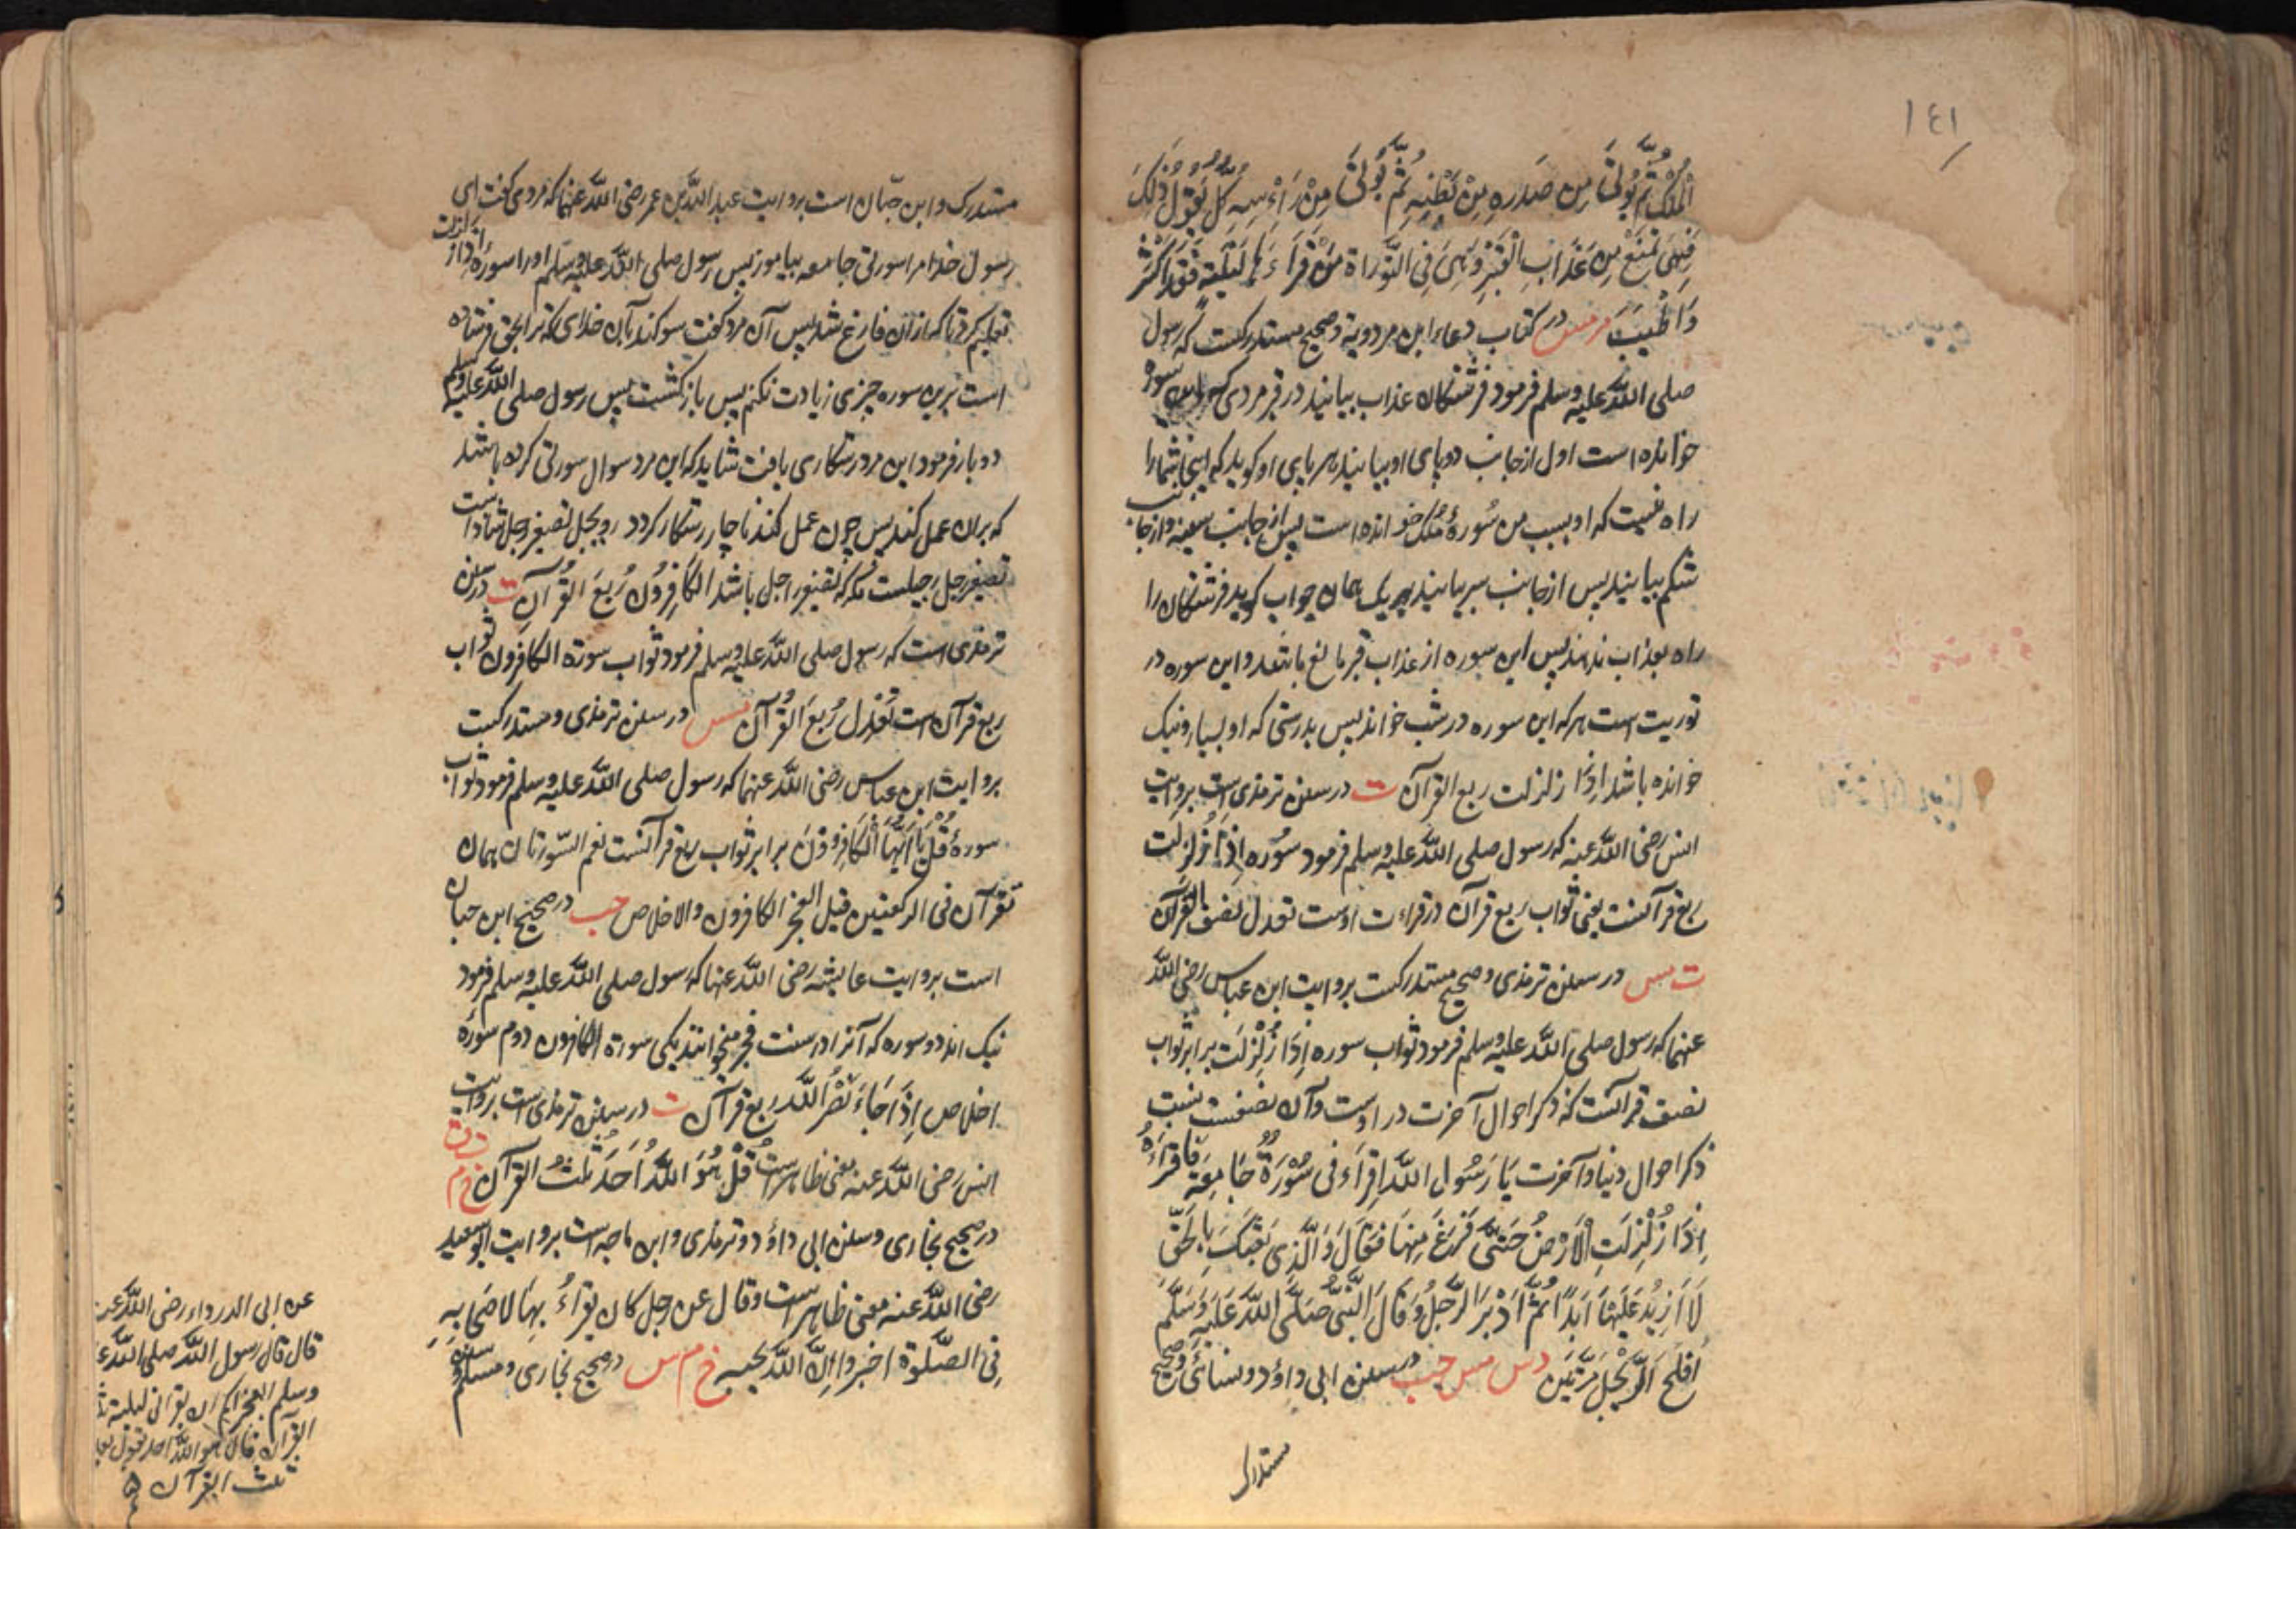 ١٤١
الْمُلْكِ ثُمَّ يُؤْتَى مِن صَدرِهِ مِنْ بَطْنِهِ ثُمَّ يُؤْتَى مِنْ رَأْسِهِ كُلٌّ يَقُولُ ذٰلِكَ
فَهِيَ تَمْنَعُ مِن عَذَابِ الْقَبْرِ وَهِيَ فِي التَّوْرَاةِ مَنْ قَرَأَهَا لَيْلَةً فَقَدْ أَكْثَرَ
وَأَطْيَبَ مر مس در كتاب دعاء ابن مردوية وصحيح مستدركست كه رسول
صلى الله عليه وسلم فرمود فرشتكان عذاب بيايند در قبر مردى كه اين سوره
خوانده است اول از جانب دو پاى او بيايند هر پاى او كويد كه اينجا شما را
راه نيست كه او بسبب من سُورهٔ مُلك خوانده است پس از جانب سينه واز جانب
شكم بيايند پس از جانب سر بيايند هر يك همان جواب كويد فرشتكان را
راه بعذاب ندهند پس اين سوره از عذاب قبر مانع باشد واين سوره در
توريت است هر كه اين سوره در شب خواند پس بدرستى كه او بسيار ونيك
خوانده باشد اِذَا زلزلت ربع القرآن ت در سنن ترمذى است بروايت
انس رَضى الله عنه كه رسول صلى الله عليه وسلم فرمود سُوره اِذَا زُلْزِلَت
ربع قرآنست يعنى ثواب ربع قرآن در قراءت اوست تعدل نصف القرآن
ت مس در سنن ترمذى وصحيح مستدركست بروايت ابن عباس رضى الله
عنهما كه رسول صلى الله عليه وسلم فرمود ثواب سوره اِذَا زُلْزِلَت برابر ثواب
نصف قرآنست كه ذكر احوال آخرت در اوست وآن نصفست بنسبت
ذكر احوال دنيا وآخرت يَا رَسُول الله اِقْرَأنى سُوْرَةٌ جَامِعَة فَاقْرَأَهُ
اِذَا زُلْزِلَتِ الْاَرْضُ حَتّٰى فَرَغَ مِنهَا فَقَالَ وَالَّذِى بَعَثَكَ بِالحَقِّ
لَا اَزِيْدُ عَلَيْهَا اَبَدًا ثُمَّ اَدْبَرَ الرَّجُلُ وَقَالَ النَّبِىُّ صَلَّى اللهُ عَلَيْهِ وَسَلَّمَ
اَفْلَحَ الرُّوَيْجِلُ مَرَّتَيْن د س مس حب در سنن ابى داؤد ونسائى وصحيح
مستدرك
مستدرك وابن حبّان است بروايت عبد الله بن عمر رضى الله عنهما كه مردى كفت اى
رسول خدا مرا سورتى جامعه بياموز پس رسول صلى الله عليه وسلم او را سورهٔ اِذَا زلزلت
تعليم كرد تا كه ازان فارغ شد پس آن مرد كفت سوكند بآن خداى كه ترا بحق فرستاده
است برين سوره چيزى زيادت نكنم پس باز كشت پس رسول صلى الله عليه وسلم
دو بار فرمود اين مرد رستكارى يافت شايد كه اين مرد سوال سورتى كرده باشد
كه بران عمل كند پس چون عمل كند ناچار رستكار كردد رويجل تصغير راجل شاذ است
تصغير رجل رجيلست مكر كه تصغير راجل باشد الكافِرُون رُبعَ القُرآنِ ت در سنن
ترمذى است كه رسول صلى الله عليه وسلم فرمود ثواب سورة الكافرون ثواب
ربع قرآن است تَعْدِل رُبعَ القُرآن ت مس در سنن ترمذى ومستدركست
بروايت ابن عباس رضى الله عنهما كه رسول صلى الله عليه وسلم فرمود ثواب
سورهٔ قُلْ يَا اَيُّهَا الْكَافِرُوْنَ برابر ثواب ربع قرآنست نعم السّورتان هما
تقرآن فى الركعتين قبل الفجر الكافرون والاخلاص حب در صحيح ابن حبان
است بروايت عايشه رضى الله عنها كه رسول صلى الله عليه وسلم فرمود
نيك اند دو سوره كه آنرا در سنت فجر ميخوانند يكى سورة الكافرون دوم سورهٔ
اخلاص اِذَا جَاءَ نَصْرُ اللهِ ربع قرآن ت در سنن ترمذى است بروايت
انس رَضى الله عنه معنى ظاهرست قُلْ هُوَ اللهُ اَحَد ثُلُثُ القرآن خ م د ت ق
در صحيح بخارى وسنن ابى داؤد وترمذى وابن ماجه است بروايت ابو سعيد
رضى الله عنه معنى ظاهرست وقال عن رجل كان يقرأُ بِهَا لاصحَابِهِ
فِى الصَّلٰوة اخبروا اِنَّ الله يحبه خ م س در صحيح بخارى ومسلم وسنن
عن ابى الدرداء رضى الله عنه
قال قال رسول الله صلى الله ع
وسلم ايعجز احدكم ان يقرا فى ليلة
القرآن قال هو الله احد
ثلث القرآن